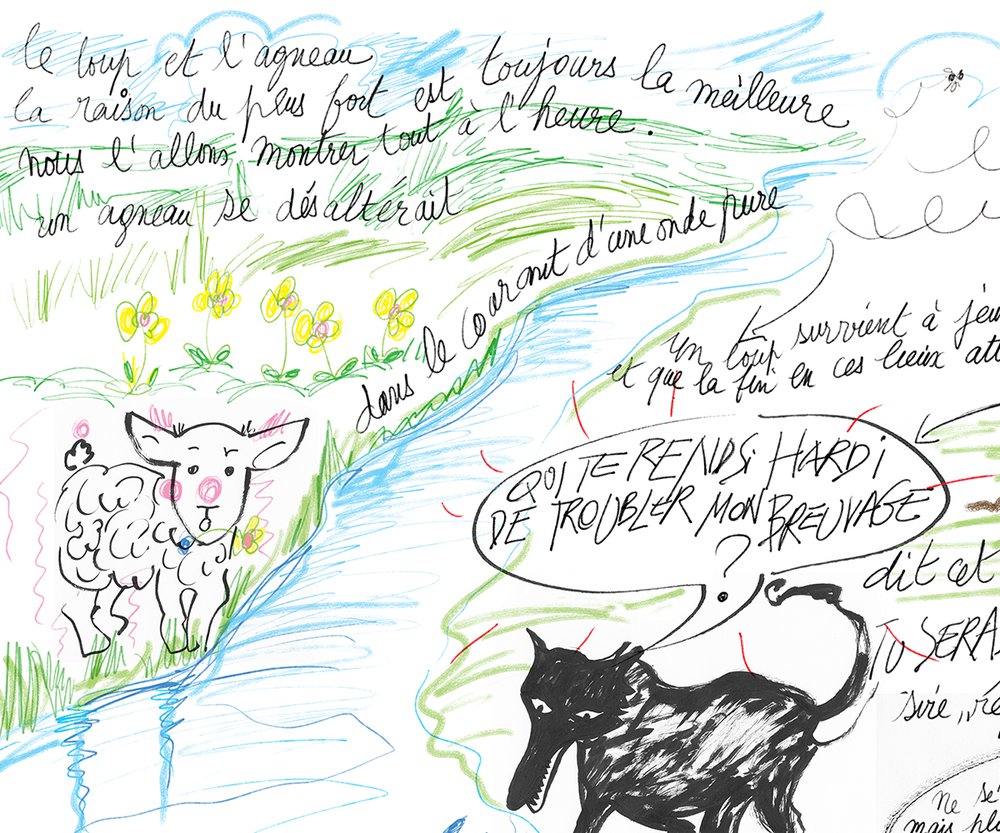 le loup et l'agneau
la raison du plus fort est toujours la meilleure
nous l'allons montrer tout à l'heure.
un agneau se désaltérait
dans le courant d'une onde pure
un loup survient à jeu
et que la fin en ces lieux att
QUI TE RENDS i HARDI
DE TROUBLER MON BREUVAGE
?
dit cet
TU SERA
sire, ré
ne sé
mais pl